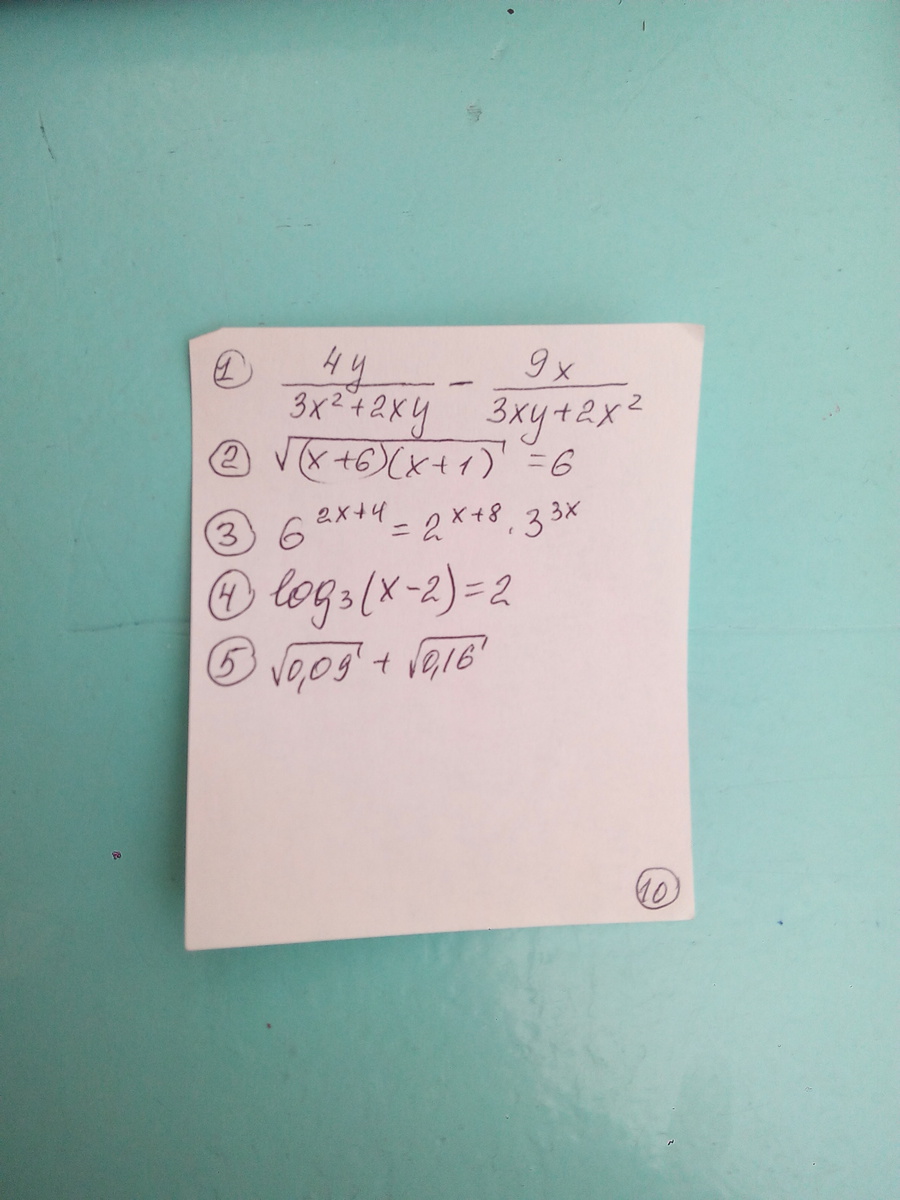 ① 4y/(3x²+2xy) − 9x/(3xy+2x²)
② √((x+6)(x+1)) = 6
③ 6^(2x+4) = 2^(x+8) · 3^(3x)
④ log₃(x−2) = 2
⑤ √0,09 + √0,16
⑩